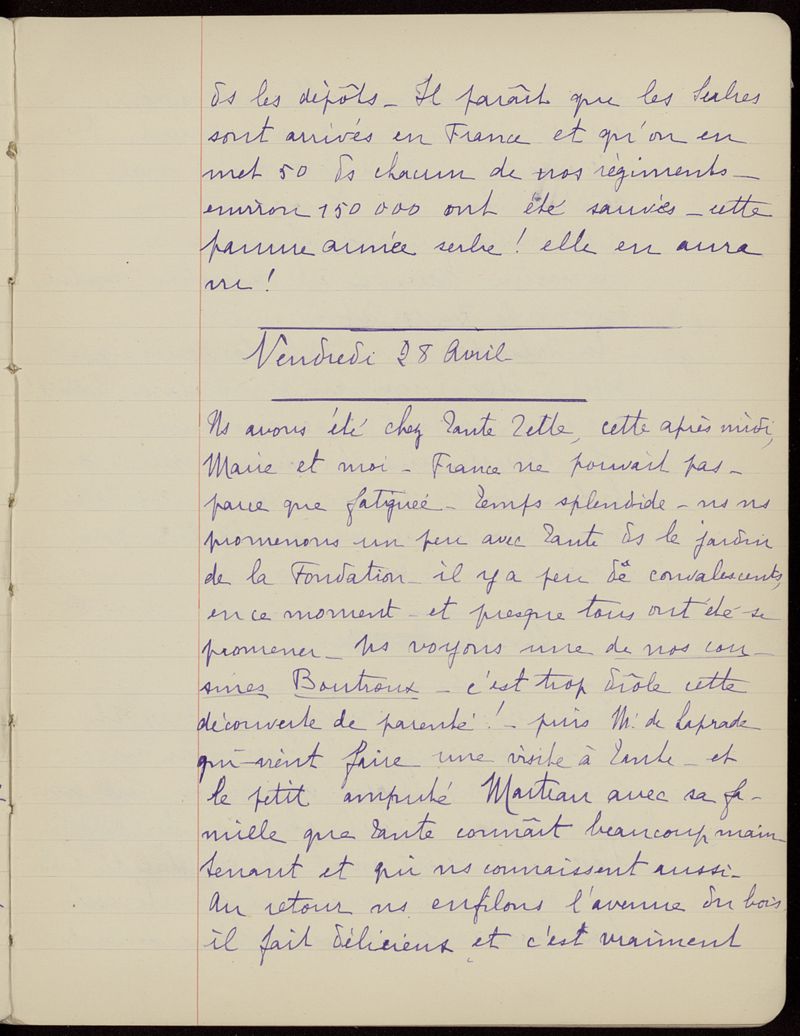 ds les dépôts - Il paraît que les Serbes
sont arrivés en France et qu'on en
met 50 ds chacun de nos régiments -
environ 150 000 ont été sauvés - cette
pauvre armée serbe ! elle en aura
vu !
Vendredi 28 Avril
Ns avons été chez Tante Zette, cette après midi,
Marie et moi - France ne pouvait pas -
parce que fatiguée - Temps splendide - ns ns
promenons un peu avec Tante ds le jardin
de la Fondation - il y a peu de convalescents,
en ce moment - et presque tous ont été se
promener - Ns voyons une de nos cou-
sines Boutroux - c'est trop drôle cette
découverte de parenté ! - puis M. de Laprade
qui vient faire une visite à Tante - et
le petit amputé Marteau avec sa fa-
mille que Tante connaît beaucoup main-
tenant et qui ns connaissent aussi -
Au retour ns enfilons l'avenue du bois
il fait délicieux et c'est vraiment